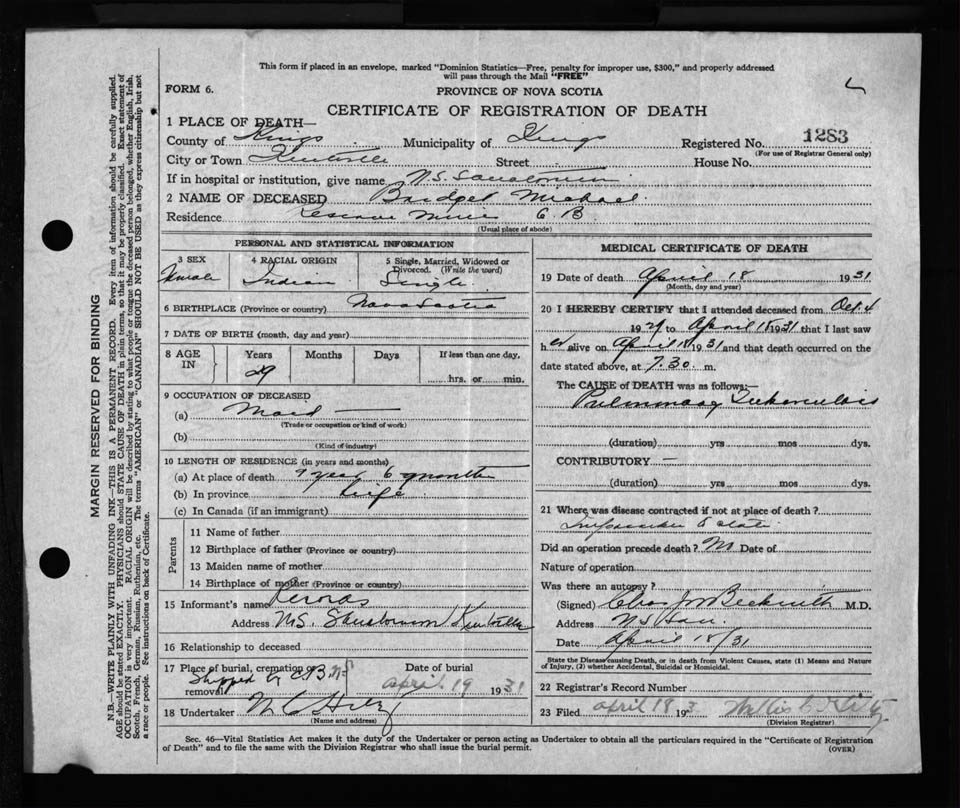 This form if placed in an envelope, marked "Dominion Statistics—Free, penalty for improper use, $300," and properly addressed
will pass through the Mail "FREE"
FORM 6.
PROVINCE OF NOVA SCOTIA
CERTIFICATE OF REGISTRATION OF DEATH
1 PLACE OF DEATH—
County of Kings Municipality of Kings Registered No. 1283
(For use of Registrar General only)
City or Town Kentville Street House No.
If in hospital or institution, give name N.S. Sanatorium
2 NAME OF DECEASED Bridget Michael.
Residence C B
(Usual place of abode)
PERSONAL AND STATISTICAL INFORMATION
3 SEX 4 RACIAL ORIGIN 5 Single, Married, Widowed or
Divorced. (Write the word)
Female Indian Single.
6 BIRTHPLACE (Province or country) Nova Scotia
7 DATE OF BIRTH (month, day and year)
8 AGE IN Years Months Days If less than one day,
29 hrs. or min.
9 OCCUPATION OF DECEASED
(a) Maid —
(Trade or occupation or kind of work)
(b)
(Kind of industry)
10 LENGTH OF RESIDENCE (in years and months)
(a) At place of death year 6 months
(b) In province Life
(c) In Canada (if an immigrant)
Parents
11 Name of father
12 Birthplace of father (Province or country)
13 Maiden name of mother
14 Birthplace of mother (Province or country)
15 Informant's name Records
Address N.S. Sanatorium Kentville
16 Relationship to deceased
17 Place of burial, cremation or Date of burial
Shipped to
removal April 19 1931
18 Undertaker
(Name and address)
MEDICAL CERTIFICATE OF DEATH
19 Date of death April 18 1931
(Month, day and year)
20 I HEREBY CERTIFY that I attended deceased from Oct. 4
1929 to April 18 1931 that I last saw
h er alive on April 18 1931 and that death occurred on the
date stated above, at 7.30 m.
The CAUSE of DEATH was as follows:—
Pulmonary Tuberculosis
(duration) yrs mos dys.
CONTRIBUTORY —
(duration) yrs mos dys.
21 Where was disease contracted if not at place of death?
Impossible to state.
Did an operation precede death? No Date of
Nature of operation
Was there an autopsy?
(Signed) Chas J W Beckwith M.D.
Address N S San.
Date April 18/31
State the Disease causing Death, or in death from Violent Causes, state (1) Means and Nature
of Injury, (2) whether Accidental, Suicidal or Homicidal.
22 Registrar's Record Number
23 Filed April 18 193
(Division Registrar)
Sec. 46—Vital Statistics Act makes it the duty of the Undertaker or person acting as Undertaker to obtain all the particulars required in the "Certificate of Registration
of Death" and to file the same with the Division Registrar who shall issue the burial permit.
(OVER)
MARGIN RESERVED FOR BINDING
N.B.—WRITE PLAINLY WITH UNFADING INK—THIS IS A PERMANENT RECORD. Every item of information should be carefully supplied.
AGE should be stated EXACTLY. PHYSICIANS should STATE CAUSE OF DEATH in plain terms, so that it may be properly classified. Exact statement of
OCCUPATION is very important. RACIAL ORIGIN will be described by stating to what people or tongue the deceased person belonged, whether English, Irish,
Scotch, French, German, Russian, Ruthenian, etc. The terms "AMERICAN" or "CANADIAN" SHOULD NOT BE USED as they express citizenship but not
a race or people. See instructions on back of Certificate.